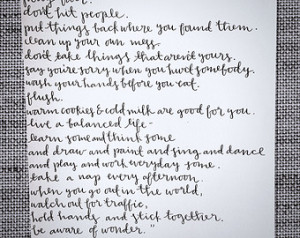 don't hit people.
put things back where you found them.
clean up your own mess.
don't take things that aren't yours.
say you're sorry when you hurt somebody.
wash your hands before you eat.
flush.
warm cookies & cold milk are good for you.
live a balanced life -
learn some and think some
and draw and paint and sing and dance
and play and work everyday some.
take a nap every afternoon.
when you go out in the world,
watch out for traffic,
hold hands and stick together.
be aware of wonder."